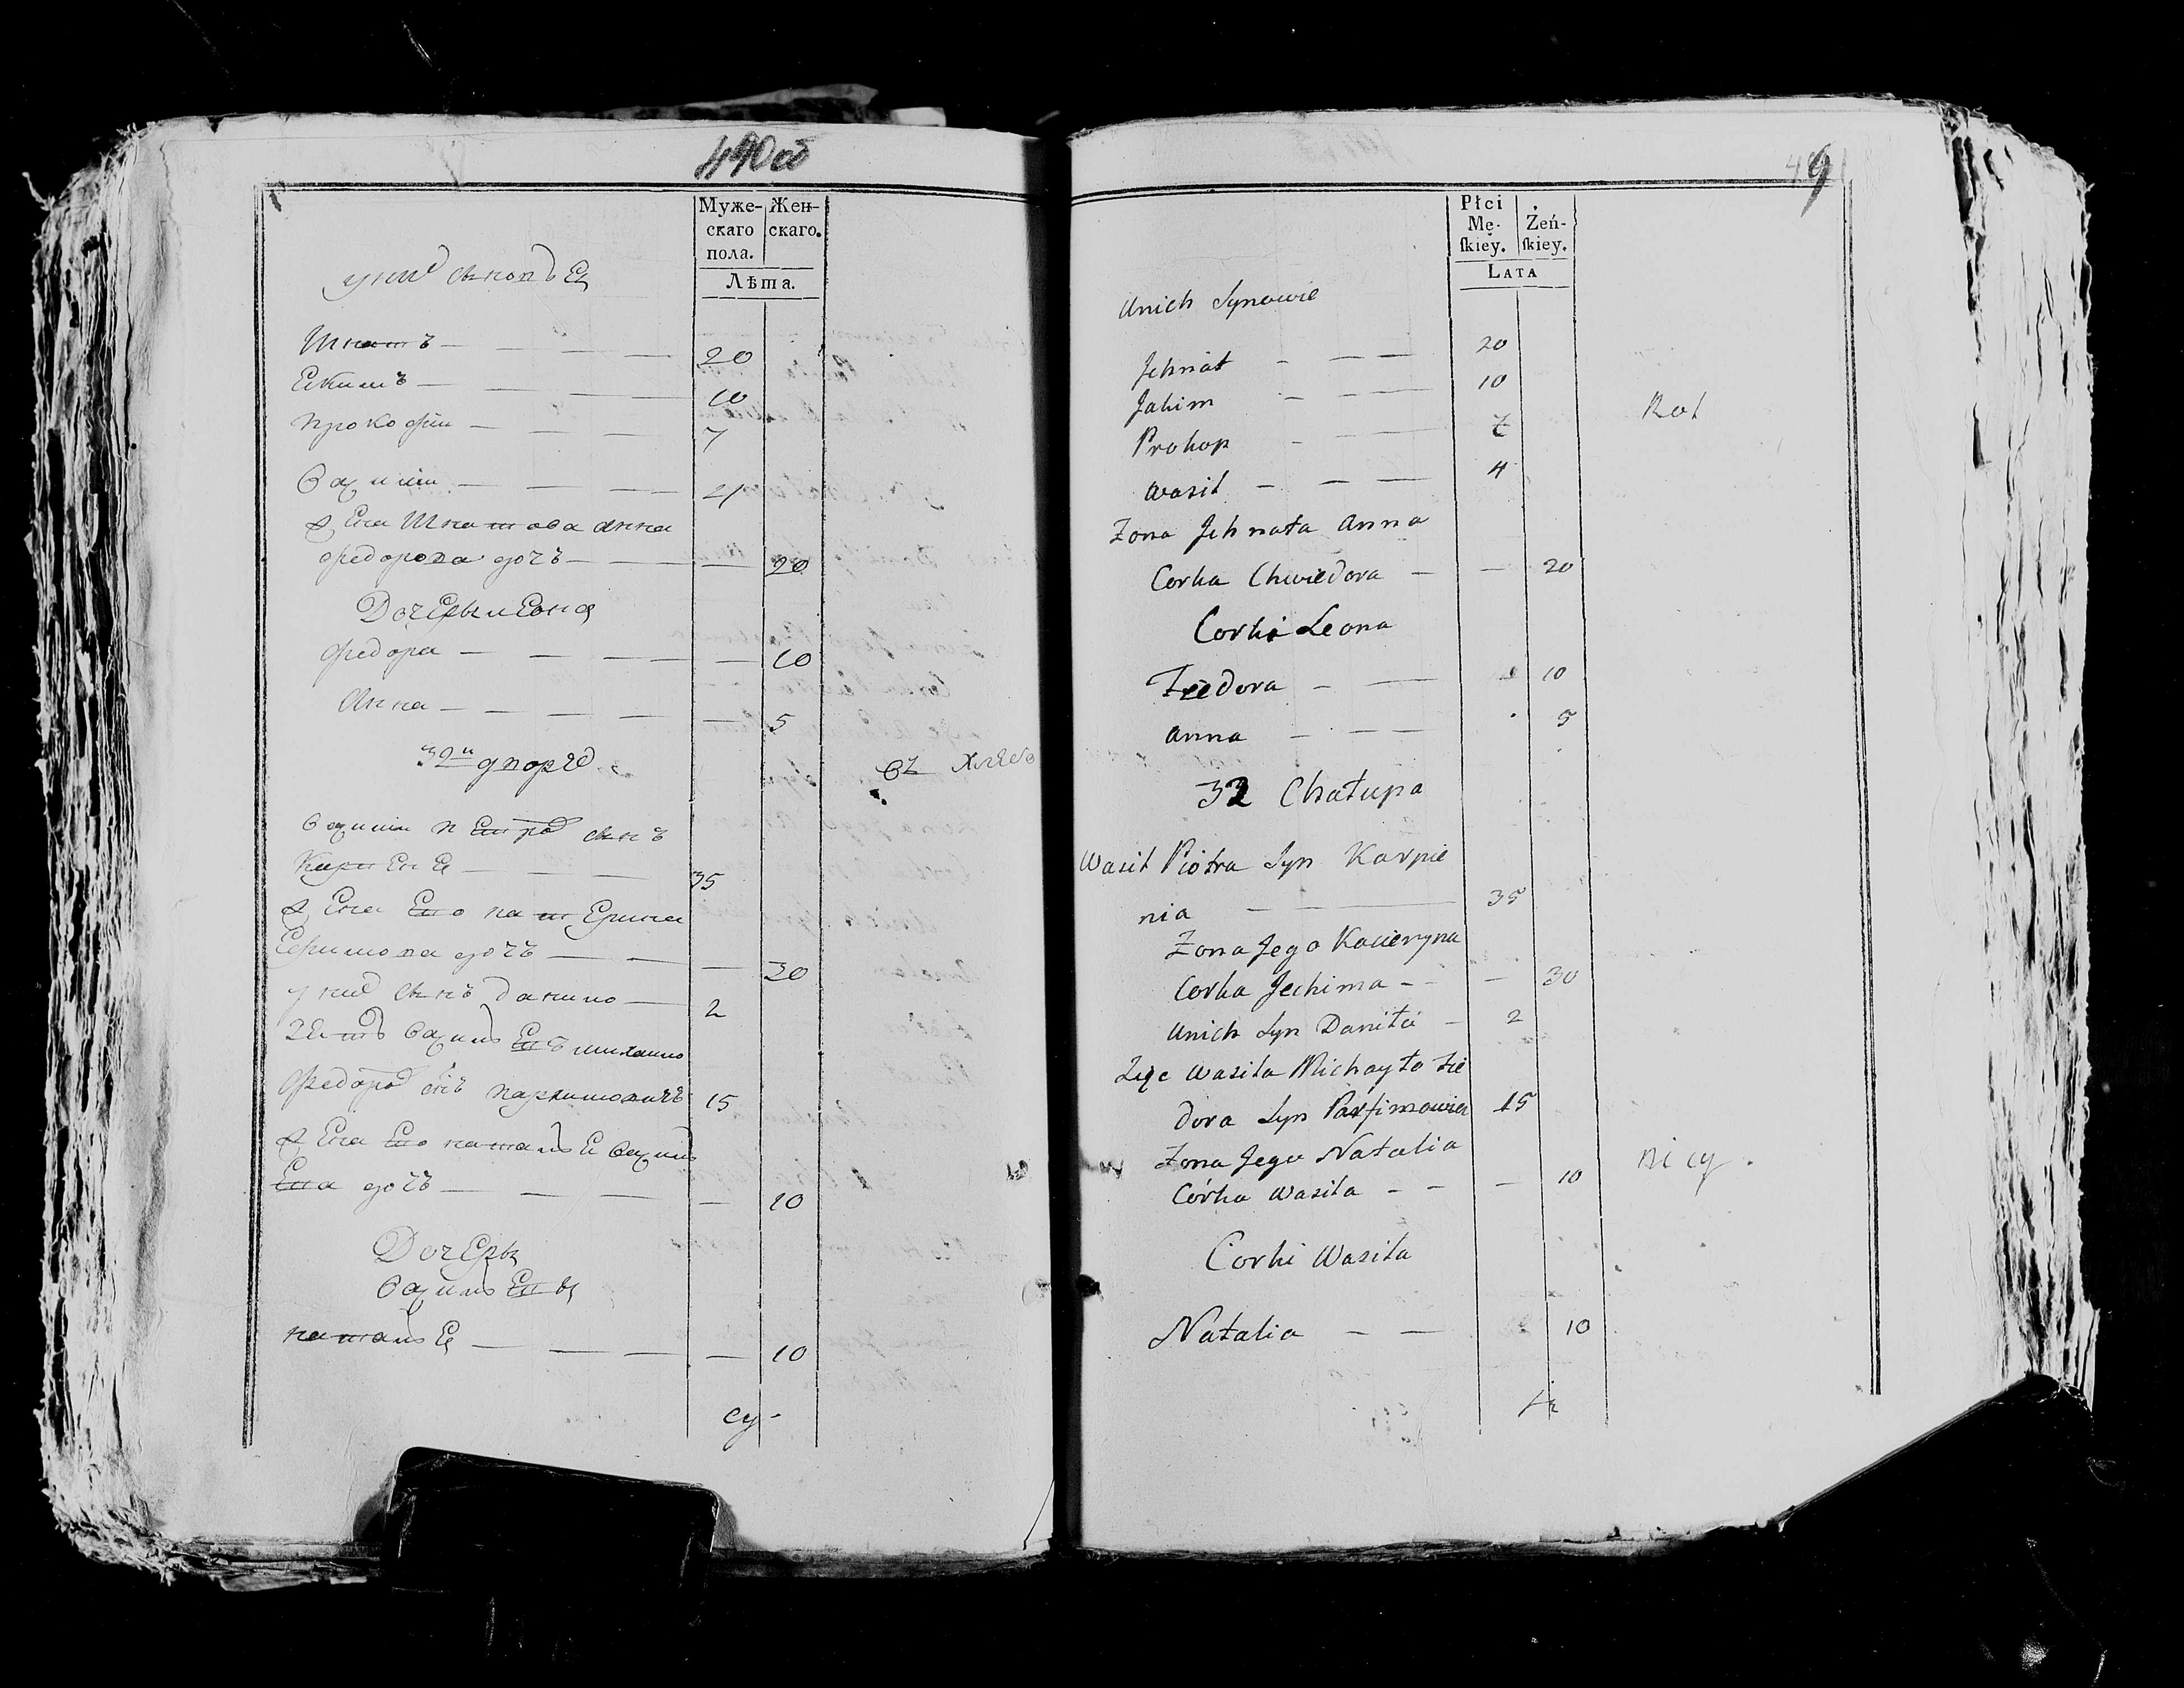 490об
Муже- Жен-
скаго скаго.
пола.
Лѣта.
у них сыновья
Игнатъ — — — — 20
Екимъ — — — — 10
прокофiи — — — — 7
василiи — — — — 4
жена Игнатова анна
федорова дочъ — — — 20
Дочери Леона
федора — — — — — 10
Анна — — — — — 5
32й дворъ
василiи петров сынъ
Карпеня — — — 35
жена Его катерина
Ефимова дочъ — — — 30
у них сынъ данило — 2
зять василья михаило
федоров снъ парфимовичъ 15
жена Его наталья василь
Ева дочъ — — — — — 10
Дочеры
васильЕвы
наталья — — — — 10
49
Płci Żeń-
Mę- skiey.
skiéy.
LATA
Unich Synowie
Jhnat - — — 20
Jakim - — — 10
Prokop - — — 7
Wasil - — — 4
Zona Jhnata Anna
Corka Chwiedora — — 20
Corki Leona
Fiedora — — 10
Anna — — — 5
32 Chałupa
Wasil Piotra Syn Karpie
nia — — 35
Zona Jego Kacieryna
Corka Jechima - - — 30
Unich Syn Daniła — 2
Zięc Wasila Michayło Fie
dora Syn Parfimowicz 15
Zona Jego Natalia
Córka Wasila - - — 10
Corki Wasila
Natalia — — 10